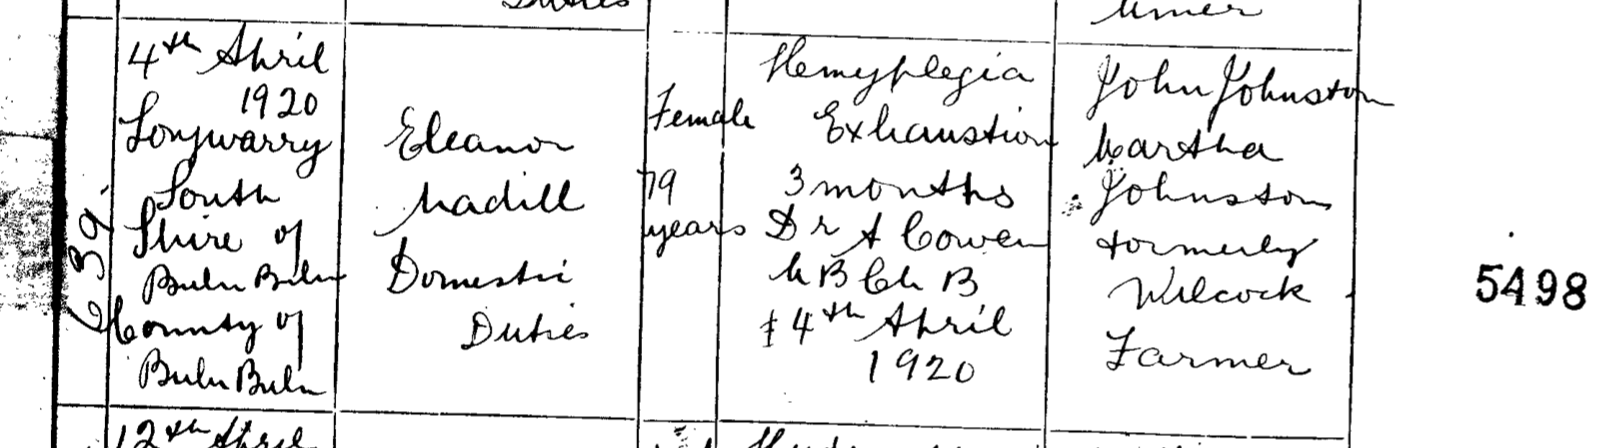 Duties
4th April
1920
Longwarry
South
Shire of
Buln Buln
County of
Buln Buln
639.
Eleanor
Madill
Domestic
Duties
Female
79
years
Hemyplegia
Exhaustion
3 months
Dr A Cowen
M B Ch B
4th April
1920
John Johnston
Martha
Johnston
formerly
Wilcock
Farmer
5498
12th April